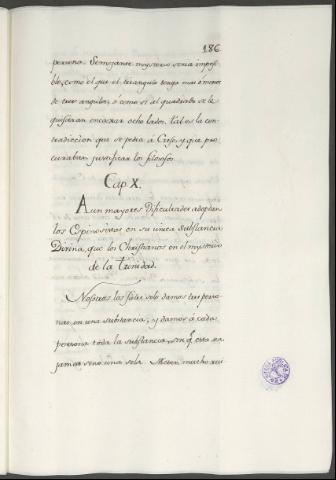 186
persona. Semejante mysterio seria imposi-
ble, como el que el triangulo tenga mas ó menos
de tres angulos, ó como si al quadrado se le
quisieran encaxar ocho lados. Tal es la con-
tradiccion que se pedia á Creso, y que pro
curaban justificar los filosofos.
Cap X.
Aun mayores Dificultades adoptan
los Espinosistas en su unica substancia
Divina, que los Christianos en el mysterio
de la Trinidad.
Nosotros los fieles solo damos tres perso
nas en una substancia, y damos á cada
persona toda la substancia, sin q.e esta sea
jamas sino una sola. Meten mucho rui